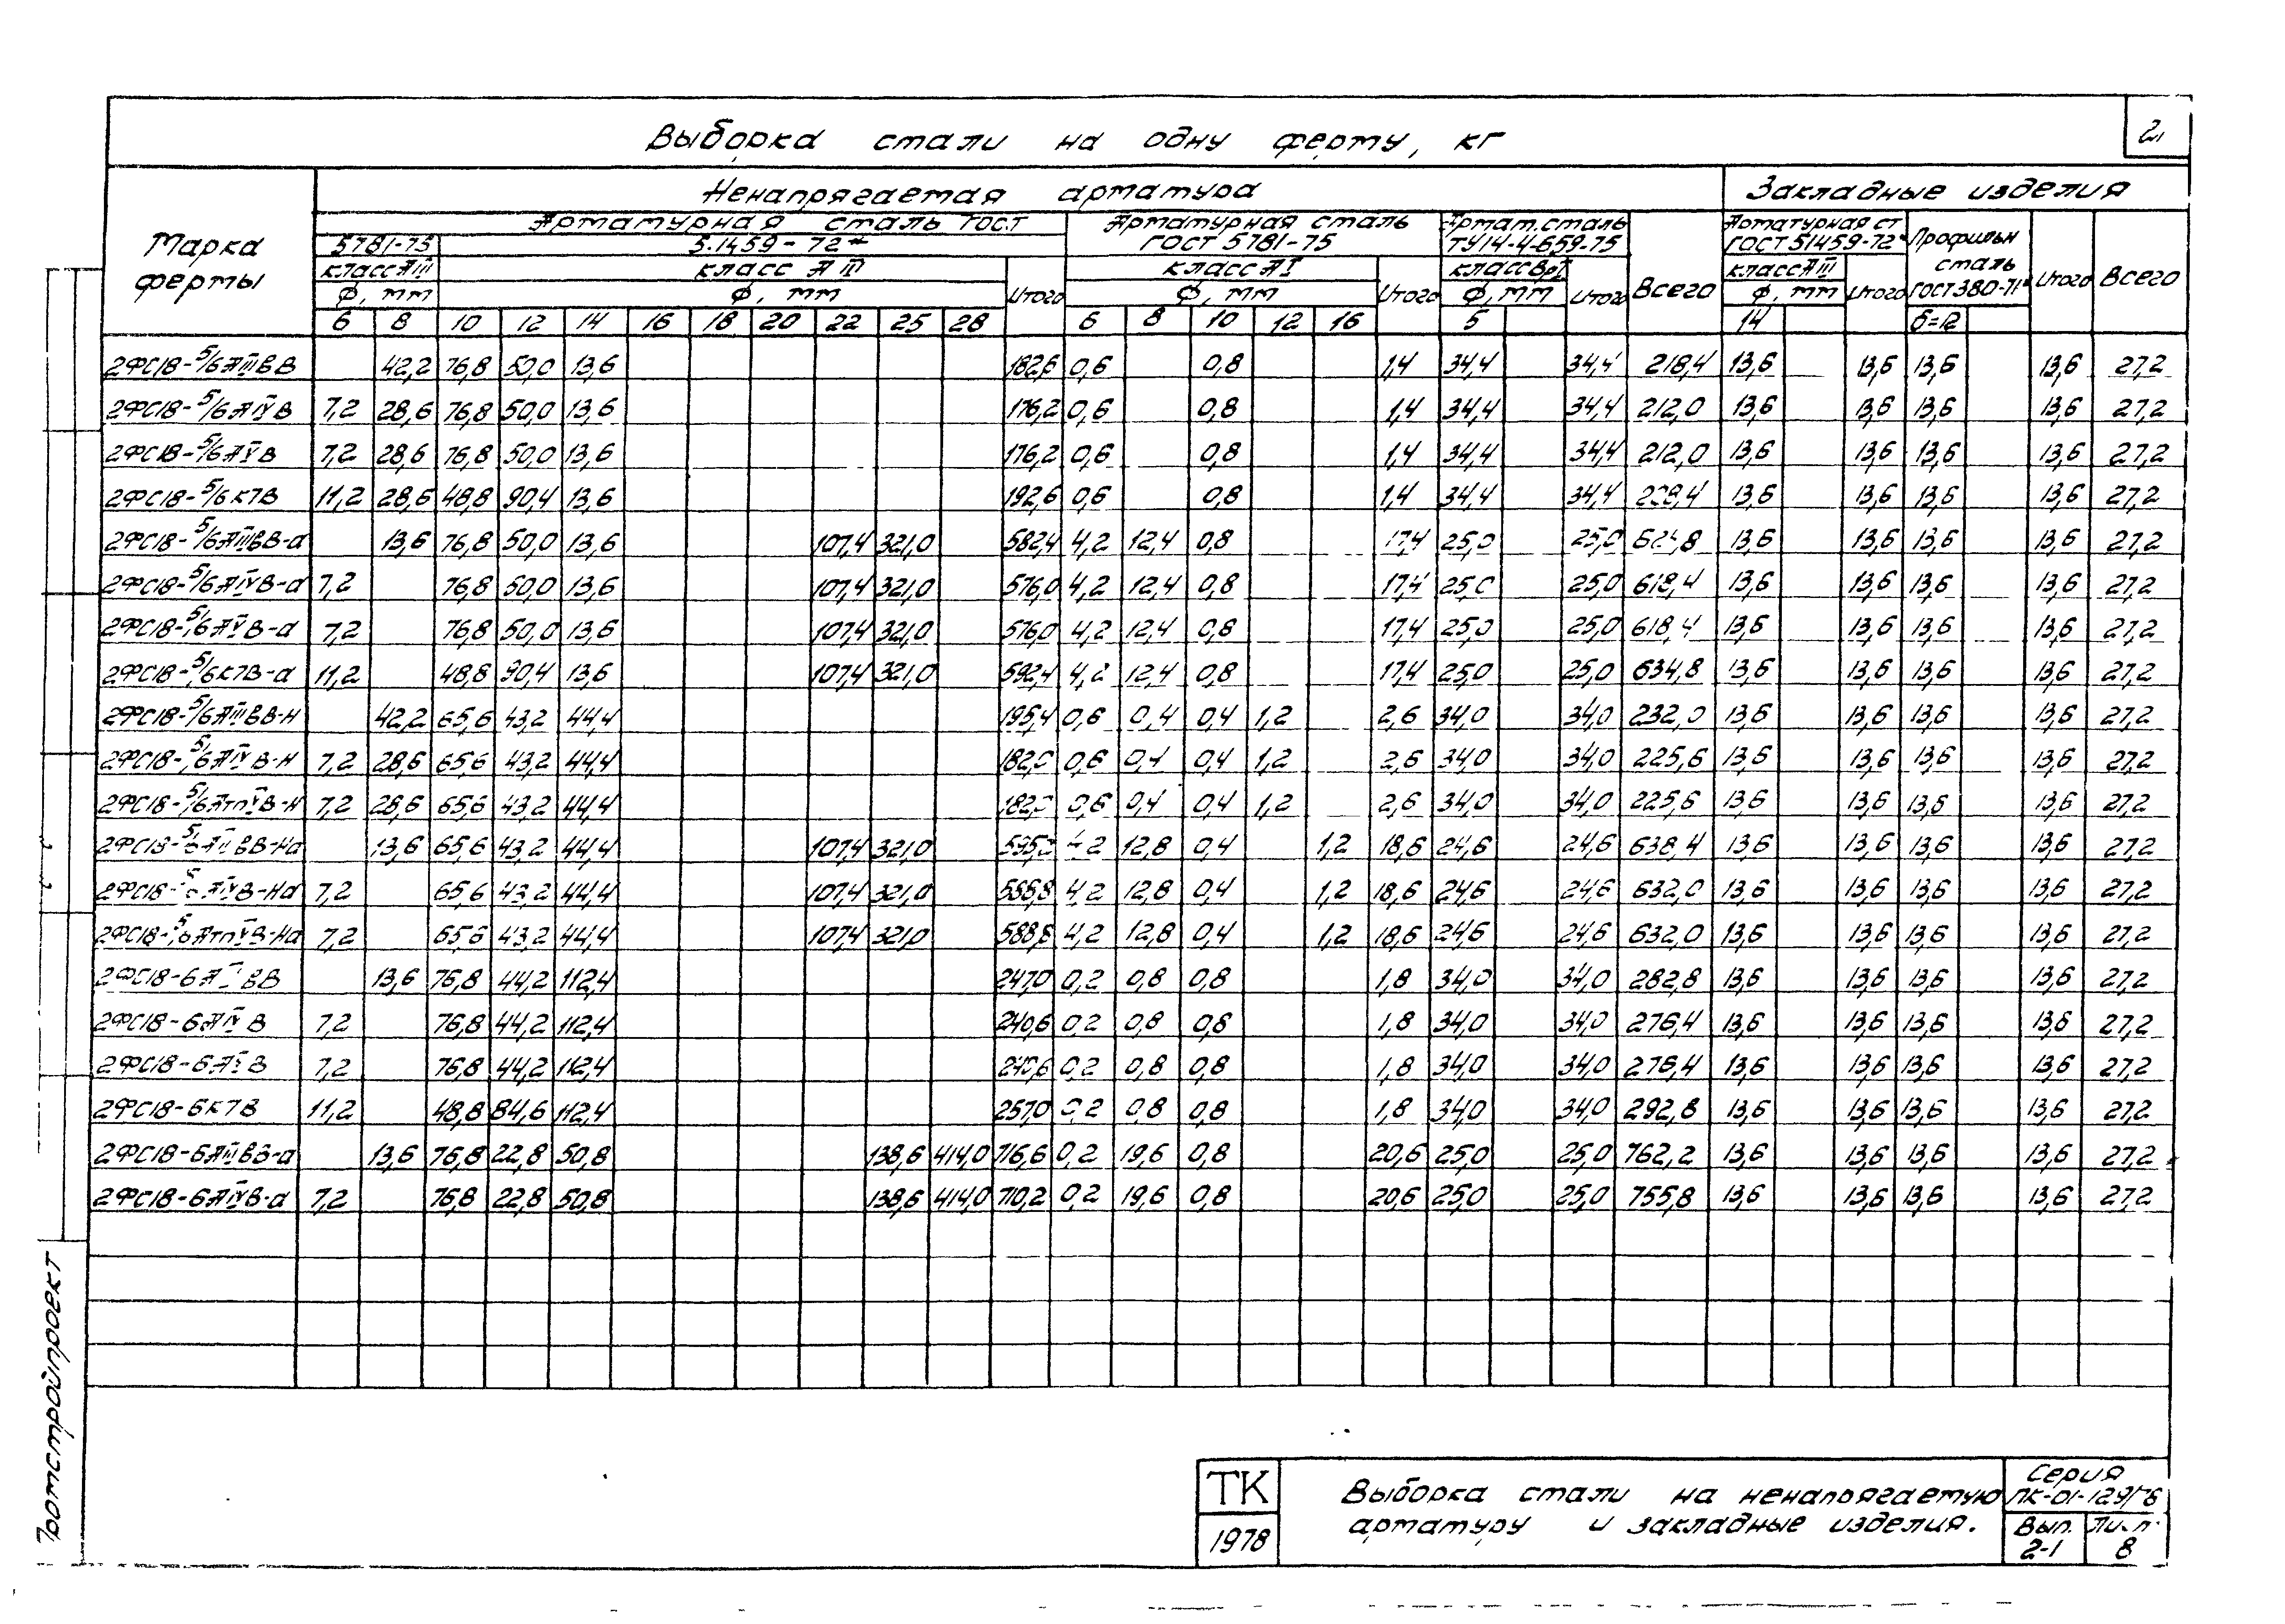 2
Выборка стали на одну ферму, кг
Марка фермы
Ненапрягаемая арматура
Закладные изделия
Арматурная сталь ГОСТ
Арматурная сталь ГОСТ 5781-75
Армат. сталь ТУ14-4-659-75
Арматурная ст ГОСТ 51459-72*
Профильн сталь ГОСТ 380-71*
5781-75
5.1459-72*
класс АIII
класс А III
класс АI
класс ВрI
класс АIII
Итого
Итого
Итого
Всего
Итого
Итого
Всего
Ф, мм
Ф, мм
Ф, мм
Ф, мм
Ф, мм
6 8 10 12 14 16 18 20 22 25 28 6 8 10 12 16 5 14 δ=12
2ФС18-5/6АIIIвВ 42,2 76,8 50,0 13,6 182,6 0,6 0,8 1,4 34,4 34,4 218,4 13,6 13,6 13,6 13,6 27,2
2ФС18-5/6АIVВ 7,2 28,6 76,8 50,0 13,6 176,2 0,6 0,8 1,4 34,4 34,4 212,0 13,6 13,6 13,6 13,6 27,2
2ФС18-5/6АVВ 7,2 28,6 76,8 50,0 13,6 176,2 0,6 0,8 1,4 34,4 34,4 212,0 13,6 13,6 13,6 13,6 27,2
2ФС18-5/6К7В 11,2 28,6 48,8 90,4 13,6 192,6 0,6 0,8 1,4 34,4 34,4 228,4 13,6 13,6 13,6 13,6 27,2
2ФС18-5/6АIIIвВ-а 13,6 76,8 50,0 13,6 107,4 321,0 582,4 4,2 12,4 0,8 17,4 25,0 25,0 624,8 13,6 13,6 13,6 13,6 27,2
2ФС18-5/6АIVВ-а 7,2 76,8 50,0 13,6 107,4 321,0 576,0 4,2 12,4 0,8 17,4 25,0 25,0 618,4 13,6 13,6 13,6 13,6 27,2
2ФС18-5/6АVВ-а 7,2 76,8 50,0 13,6 107,4 321,0 576,0 4,2 12,4 0,8 17,4 25,0 25,0 618,4 13,6 13,6 13,6 13,6 27,2
2ФС18-5/6К7В-а 11,2 48,8 90,4 13,6 107,4 321,0 592,4 4,2 12,4 0,8 17,4 25,0 25,0 634,8 13,6 13,6 13,6 13,6 27,2
2ФС18-5/6АIIIвВ-Н 42,2 65,6 43,2 44,4 195,4 0,6 0,4 0,4 1,2 2,6 34,0 34,0 232,0 13,6 13,6 13,6 13,6 27,2
2ФС18-5/6АIVВ-Н 7,2 28,6 65,6 43,2 44,4 0,6 0,4 0,4 1,2 2,6 34,0 34,0 225,6 13,6 13,6 13,6 13,6 27,2
2ФС18-5/6АтпVВ-Н 7,2 28,6 65,6 43,2 44,4 0,6 0,4 0,4 1,2 2,6 34,0 34,0 225,6 13,6 13,6 13,6 13,6 27,2
2ФС18-5/6АIIIвВ-На 13,6 65,6 43,2 44,4 107,4 321,0 4,2 12,8 0,4 1,2 18,6 24,6 24,6 638,4 13,6 13,6 13,6 13,6 27,2
2ФС18-5/6АIVВ-На 7,2 65,6 43,2 44,4 107,4 321,0 588,8 4,2 12,8 0,4 1,2 18,6 24,6 24,6 632,0 13,6 13,6 13,6 13,6 27,2
2ФС18-5/6АтпVВ-На 7,2 65,6 43,2 44,4 107,4 321,0 588,8 4,2 12,8 0,4 1,2 18,6 24,6 24,6 632,0 13,6 13,6 13,6 13,6 27,2
2ФС18-6АIIIвВ 13,6 76,8 44,2 112,4 247,0 0,2 0,8 0,8 1,8 34,0 34,0 282,8 13,6 13,6 13,6 13,6 27,2
2ФС18-6АIVВ 7,2 76,8 44,2 112,4 240,6 0,2 0,8 0,8 1,8 34,0 34,0 276,4 13,6 13,6 13,6 13,6 27,2
2ФС18-6АVВ 7,2 76,8 44,2 112,4 240,6 0,2 0,8 0,8 1,8 34,0 34,0 276,4 13,6 13,6 13,6 13,6 27,2
2ФС18-6К7В 11,2 48,8 84,6 112,4 257,0 0,2 0,8 0,8 1,8 34,0 34,0 292,8 13,6 13,6 13,6 13,6 27,2
2ФС18-6АIIIвВ-а 13,6 76,8 22,8 50,8 138,6 414,0 716,6 0,2 19,6 0,8 20,6 25,0 25,0 762,2 13,6 13,6 13,6 13,6 27,2
2ФС18-6АIVВ-а 7,2 76,8 22,8 50,8 138,6 414,0 710,2 0,2 19,6 0,8 20,6 25,0 25,0 755,8 13,6 13,6 13,6 13,6 27,2
Промстройпроект
ТК
1978
Выборка стали на ненапрягаемую
арматуру и закладные изделия.
Серия
ПК-01-129/78
Вып.
2-1
Лист
8